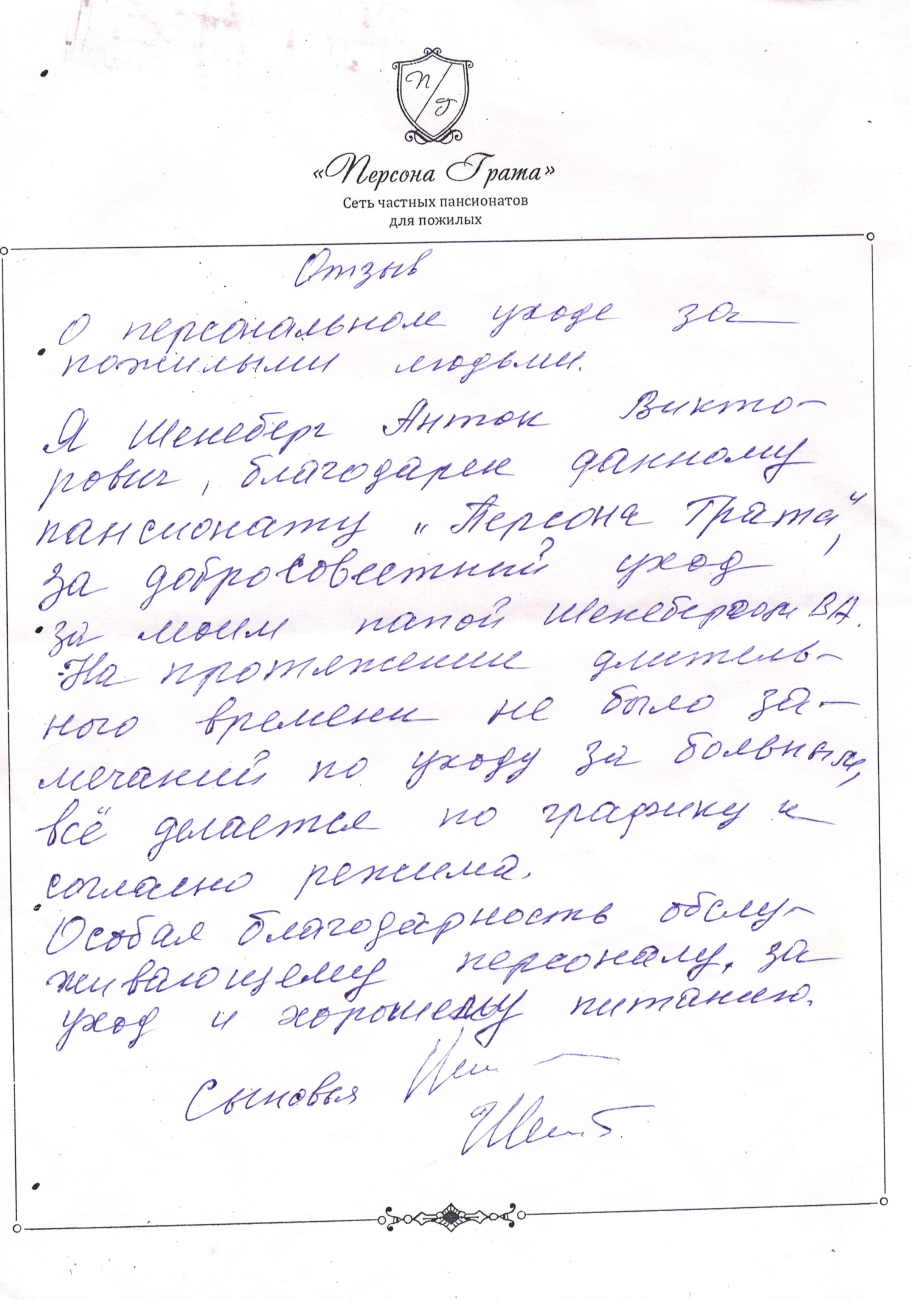 П
Г
«Персона Грата»
Сеть частных пансионатов
для пожилых
Отзыв
О персональном уходе за
пожилыми людьми.
Я Шенеберг Антон Викто-
рович, благодарен данному
пансионату „Персона Грата",
за добросовестный уход
за моим папой Шенебергом В.А.
На протяжении длитель-
ного времени не было за-
мечаний по уходу за больными,
всё делается по графику и
согласно режима.
Особая благодарность обслу-
живающему персоналу, за
уход и хорошему питанию.
Сыновья